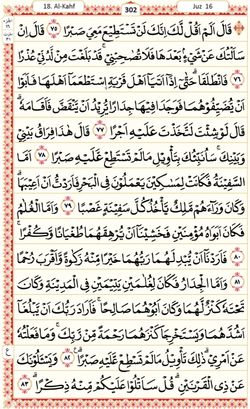 18. Al-Kahf 302 Juz 16
قَالَ اَلَمْ اَقُلْ لَّكَ اِنَّكَ لَنْ تَسْتَطِيْعَ مَعِيَ صَبْرًا ٧٥ قَالَ اِنْ
سَاَلْتُكَ عَنْ شَيْءٍۭ بَعْدَهَا فَلَا تُصٰحِبْنِيْ ۚ قَدْ بَلَغْتَ مِنْ لَّدُنِّيْ عُذْرًا
٧٦ فَانْطَلَقَا ۥ حَتّٰۤى اِذَاۤ اَتَيَاۤ اَهْلَ قَرْيَةِ ۨاسْتَطْعَمَاۤ اَهْلَهَا فَاَبَوْا
اَنْ يُّضَيِّفُوْهُمَا فَوَجَدَا فِيْهَا جِدَارًا يُّرِيْدُ اَنْ يَّنْقَضَّ فَاَقَامَهٗ ؕ
قَالَ لَوْ شِئْتَ لَتَّخَذْتَ عَلَيْهِ اَجْرًا ٧٧ قَالَ هٰذَا فِرَاقُ بَيْنِيْ
وَبَيْنِكَ ۚ سَاُنَبِّئُكَ بِتَاْوِيْلِ مَا لَمْ تَسْتَطِعْ عَّلَيْهِ صَبْرًا ٧٨ اَمَّا
السَّفِيْنَةُ فَكَانَتْ لِمَسٰكِيْنَ يَعْمَلُوْنَ فِي الْبَحْرِ فَاَرَدْتُّ اَنْ اَعِيْبَهَا
وَكَانَ وَرَآءَهُمْ مَّلِكٌ يَّاْخُذُ كُلَّ سَفِيْنَةٍ غَصْبًا ٧٩ وَاَمَّا الْغُلٰمُ
فَكَانَ اَبَوٰهُ مُؤْمِنَيْنِ فَخَشِيْنَاۤ اَنْ يُّرْهِقَهُمَا طُغْيَانًا وَّكُفْرًا ۚ
٨٠ فَاَرَدْنَاۤ اَنْ يُّبْدِلَهُمَا رَبُّهُمَا خَيْرًا مِّنْهُ زَكٰوةً وَّاَقْرَبَ رُحْمًا
٨١ وَاَمَّا الْجِدَارُ فَكَانَ لِغُلٰمَيْنِ يَتِيْمَيْنِ فِي الْمَدِيْنَةِ وَكَانَ
تَحْتَهٗ كَنْزٌ لَّهُمَا وَكَانَ اَبُوْهُمَا صَالِحًا ۚ فَاَرَادَ رَبُّكَ اَنْ يَّبْلُغَاۤ
اَشُدَّهُمَا وَيَسْتَخْرِجَا كَنْزَهُمَا رَحْمَةً مِّنْ رَّبِّكَ ۚ وَمَا فَعَلْتُهٗ
عَنْ اَمْرِيْ ؕ ذٰلِكَ تَاْوِيْلُ مَا لَمْ تَسْطِعْ عَّلَيْهِ صَبْرًا ٨٢ وَيَسْـَٔلُوْنَكَ
عَنْ ذِي الْقَرْنَيْنِ ؕ قُلْ سَاَتْلُوْا عَلَيْكُمْ مِّنْهُ ذِكْرًا ٨٣